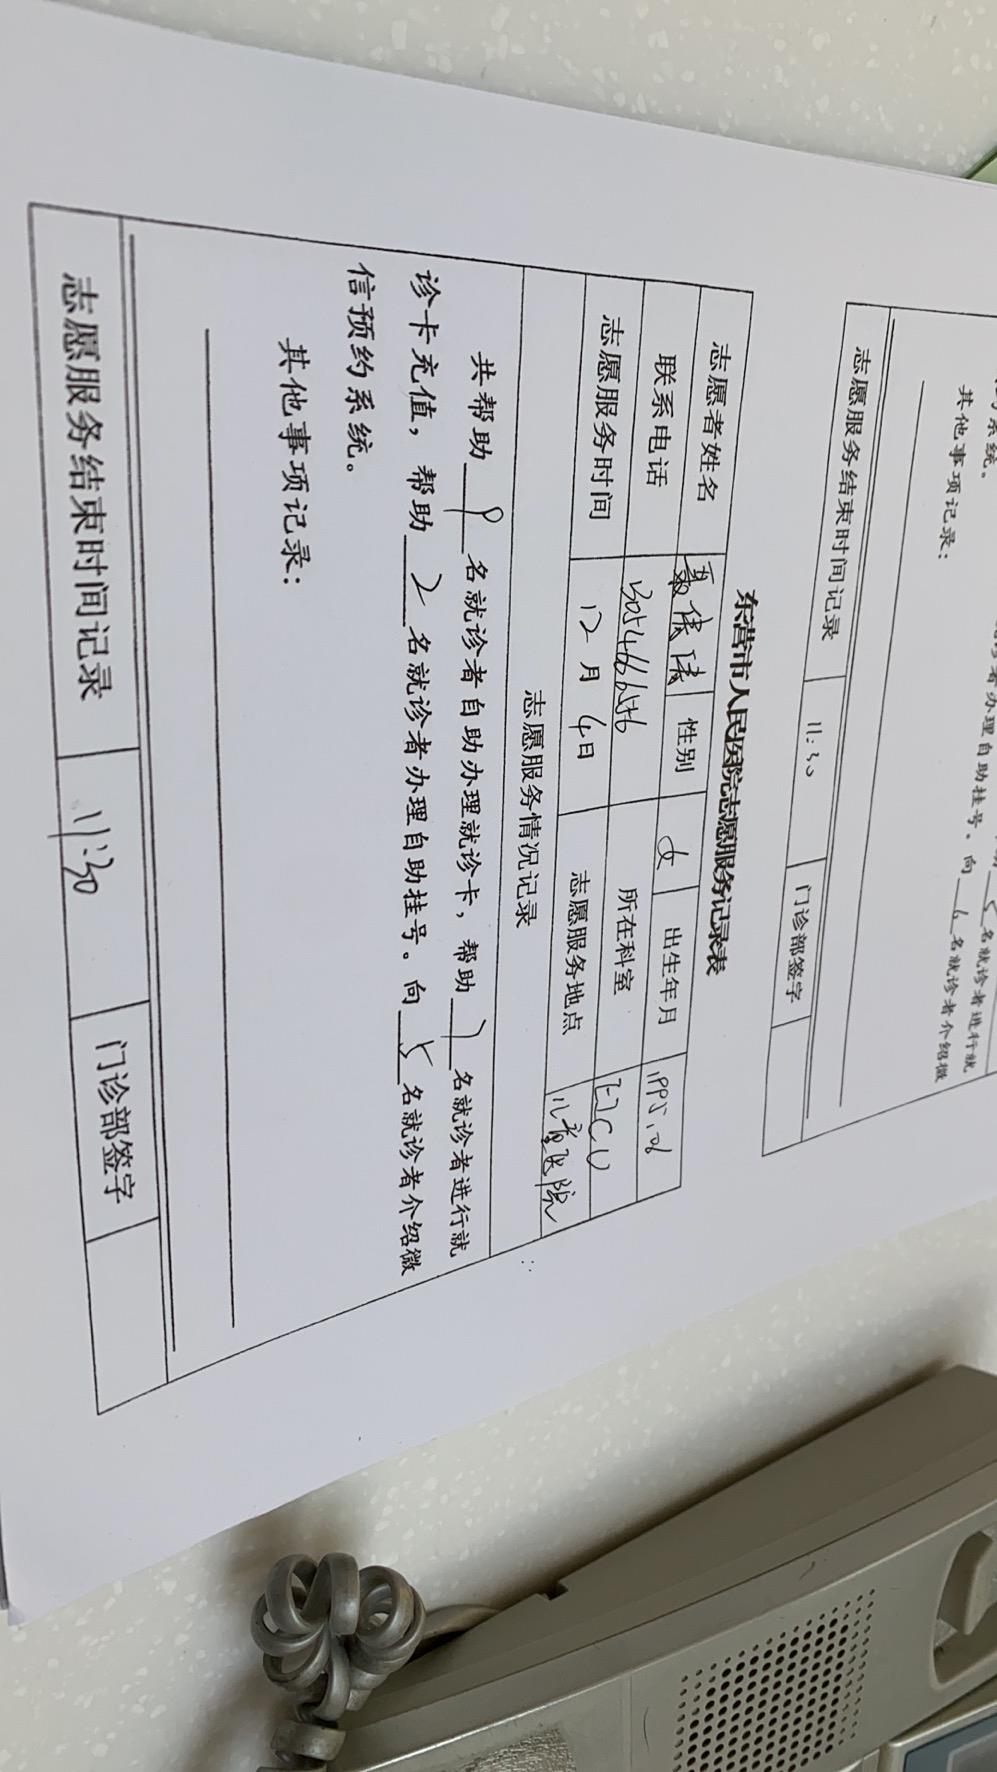 约系统。
其他事项记录：
志愿服务结束时间记录 11:30 门诊部签字
名就诊者进行就
诊者办理自助挂号。向 6 名就诊者介绍微
东营市人民医院志愿服务记录表
志愿者姓名 性别 女 出生年月 1995.06
联系电话 所在科室 EICU
志愿服务时间 12月4日 志愿服务地点 儿童医院
志愿服务情况记录
共帮助 9 名就诊者自助办理就诊卡，帮助 7 名就诊者进行就
诊卡充值，帮助 2 名就诊者办理自助挂号。向 5 名就诊者介绍微
信预约系统。
其他事项记录：
志愿服务结束时间记录 11:30 门诊部签字